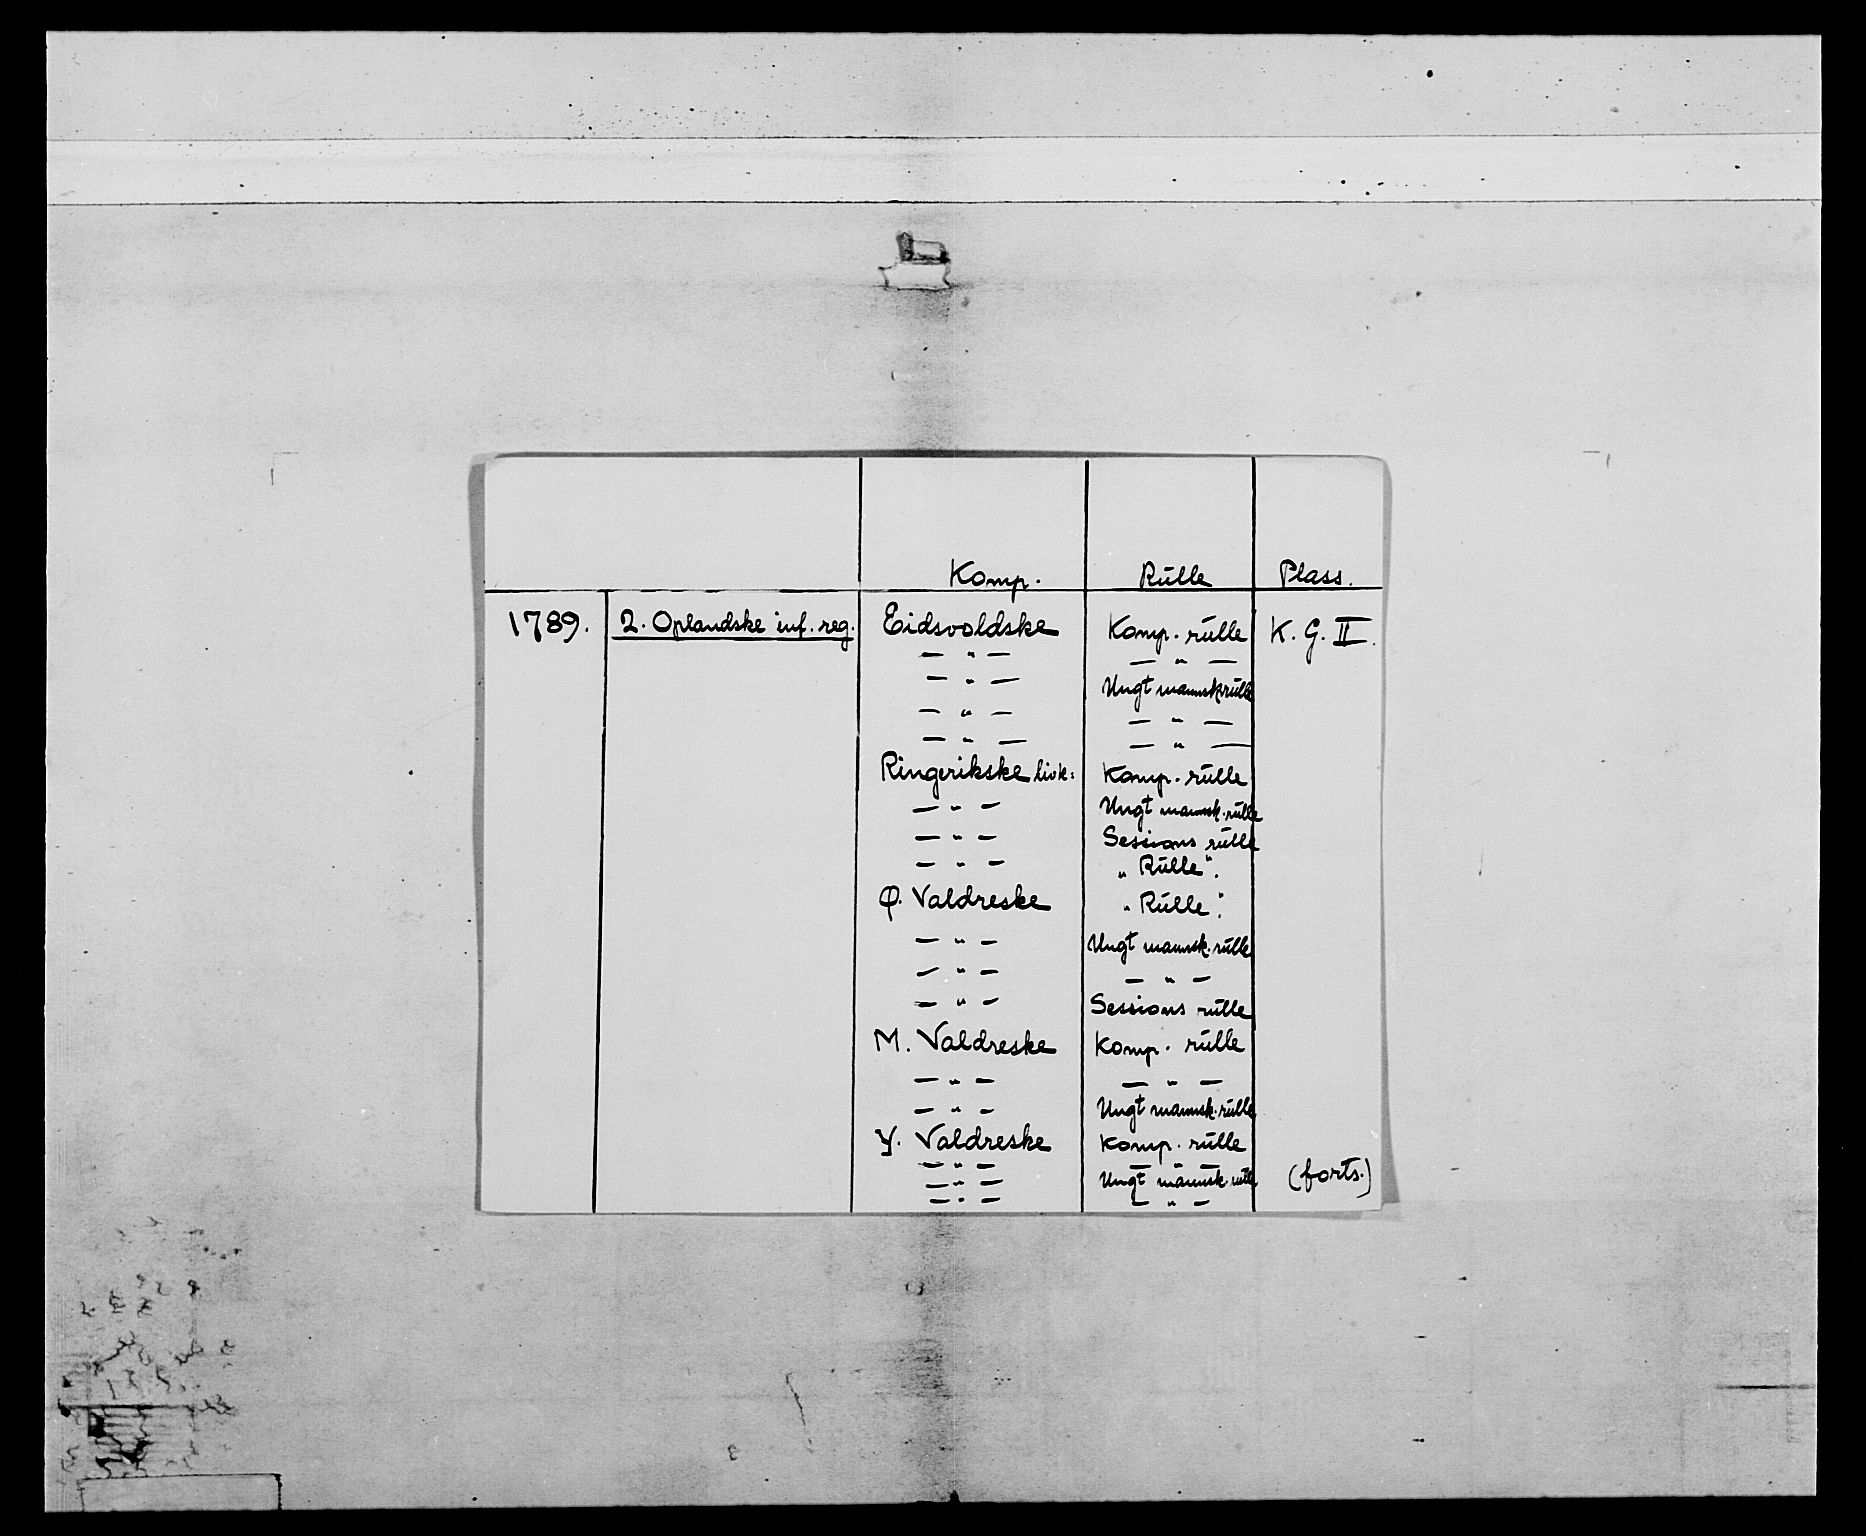 Komp. Rülle Plass.
1789. 2. Oplandske inf. reg. Eidsvoldske Komp. rülle K. G. II.
— " — — " —
— " — Ungt mannsk rülle
— " — — " —
— " — — " —
Ringerikske livk: Komp. rülle
— " — Ungt mannsk. rülle
— " — Sessions rülle
— " — „ Rülle".
Ø. Valdreske „ Rülle".
— " — Ungt mannsk. rülle
— " — — " —
— " — Sessions rülle
M. Valdreske Komp. rülle
— " — — " —
— " — Ungt mannsk. rülle
Y. Valdreske Komp. rülle
— " — — " —
— " — Ungt mannsk. rülle (forts.)
— " — — " —